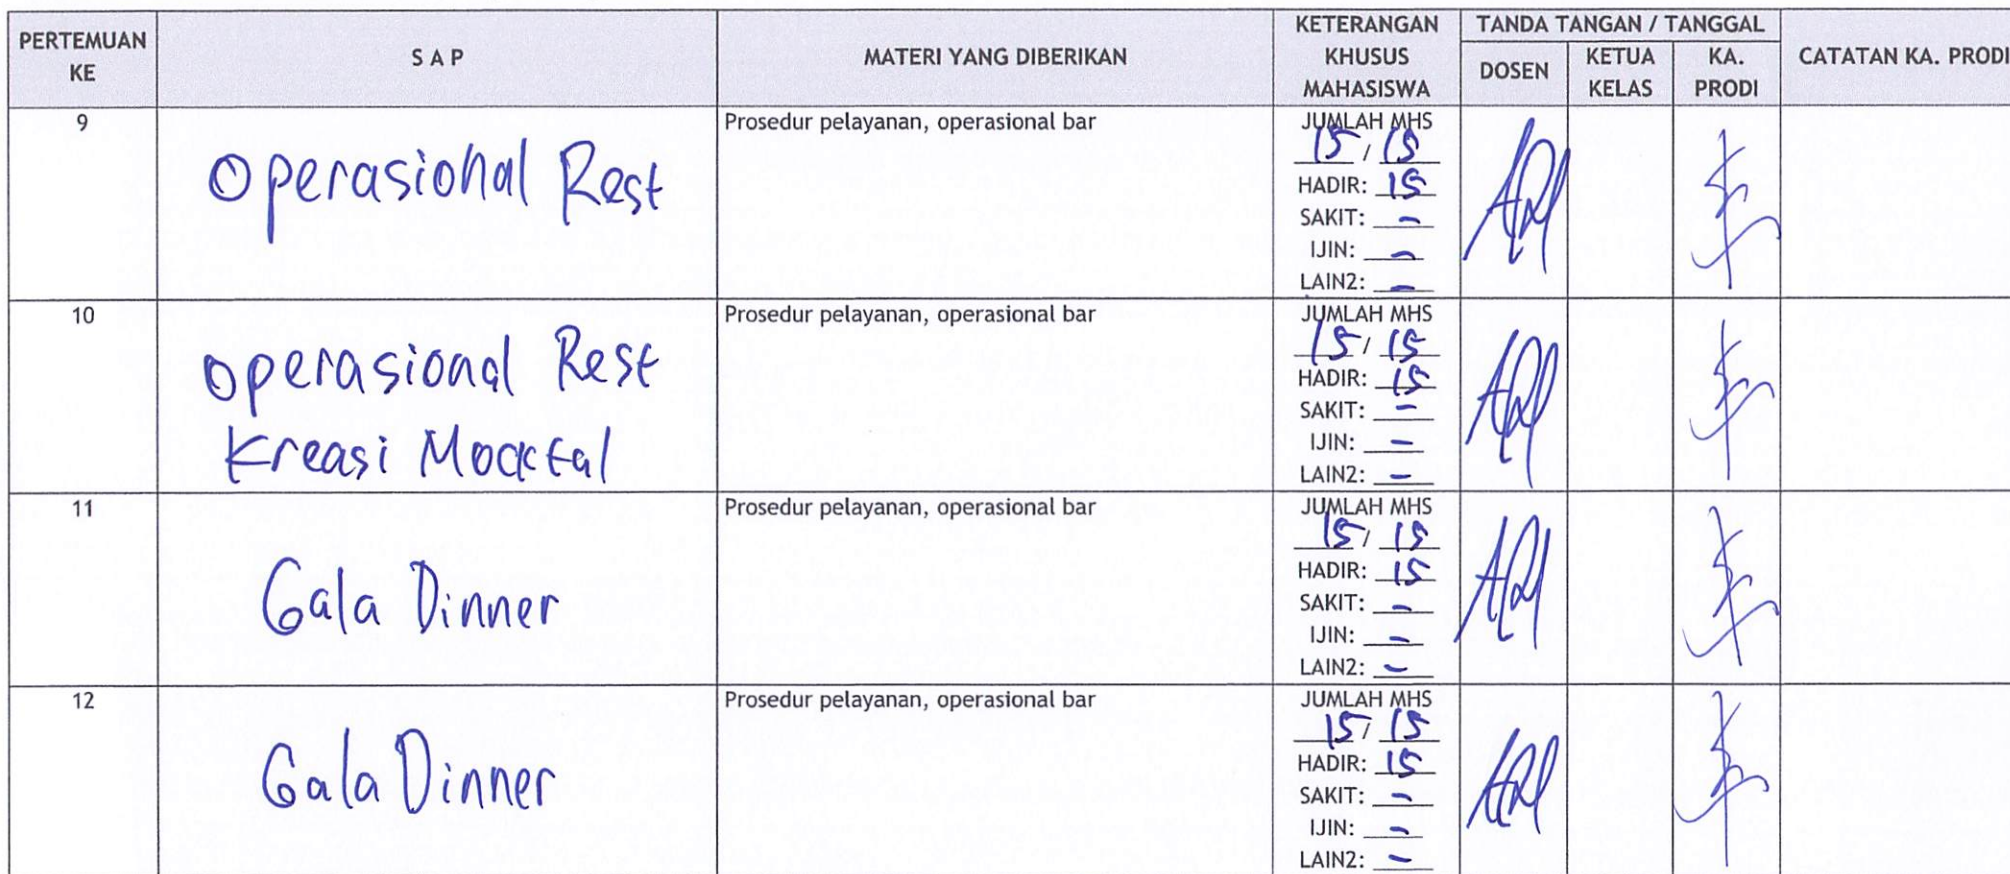 PERTEMUAN KE
S A P
MATERI YANG DIBERIKAN
KETERANGAN KHUSUS MAHASISWA
TANDA TANGAN / TANGGAL
DOSEN
KETUA KELAS
KA. PRODI
CATATAN KA. PRODI
9
Operasional Rest
Prosedur pelayanan, operasional bar
JUMLAH MHS
15 / 15
HADIR: 15
SAKIT: -
IJIN: -
LAIN2: -
10
Operasional Rest
Kreasi Mocktal
Prosedur pelayanan, operasional bar
JUMLAH MHS
15 / 15
HADIR: 15
SAKIT: -
IJIN: -
LAIN2: -
11
Gala Dinner
Prosedur pelayanan, operasional bar
JUMLAH MHS
15 / 15
HADIR: 15
SAKIT: -
IJIN: -
LAIN2: -
12
Gala Dinner
Prosedur pelayanan, operasional bar
JUMLAH MHS
15 / 15
HADIR: 15
SAKIT: -
IJIN: -
LAIN2: -